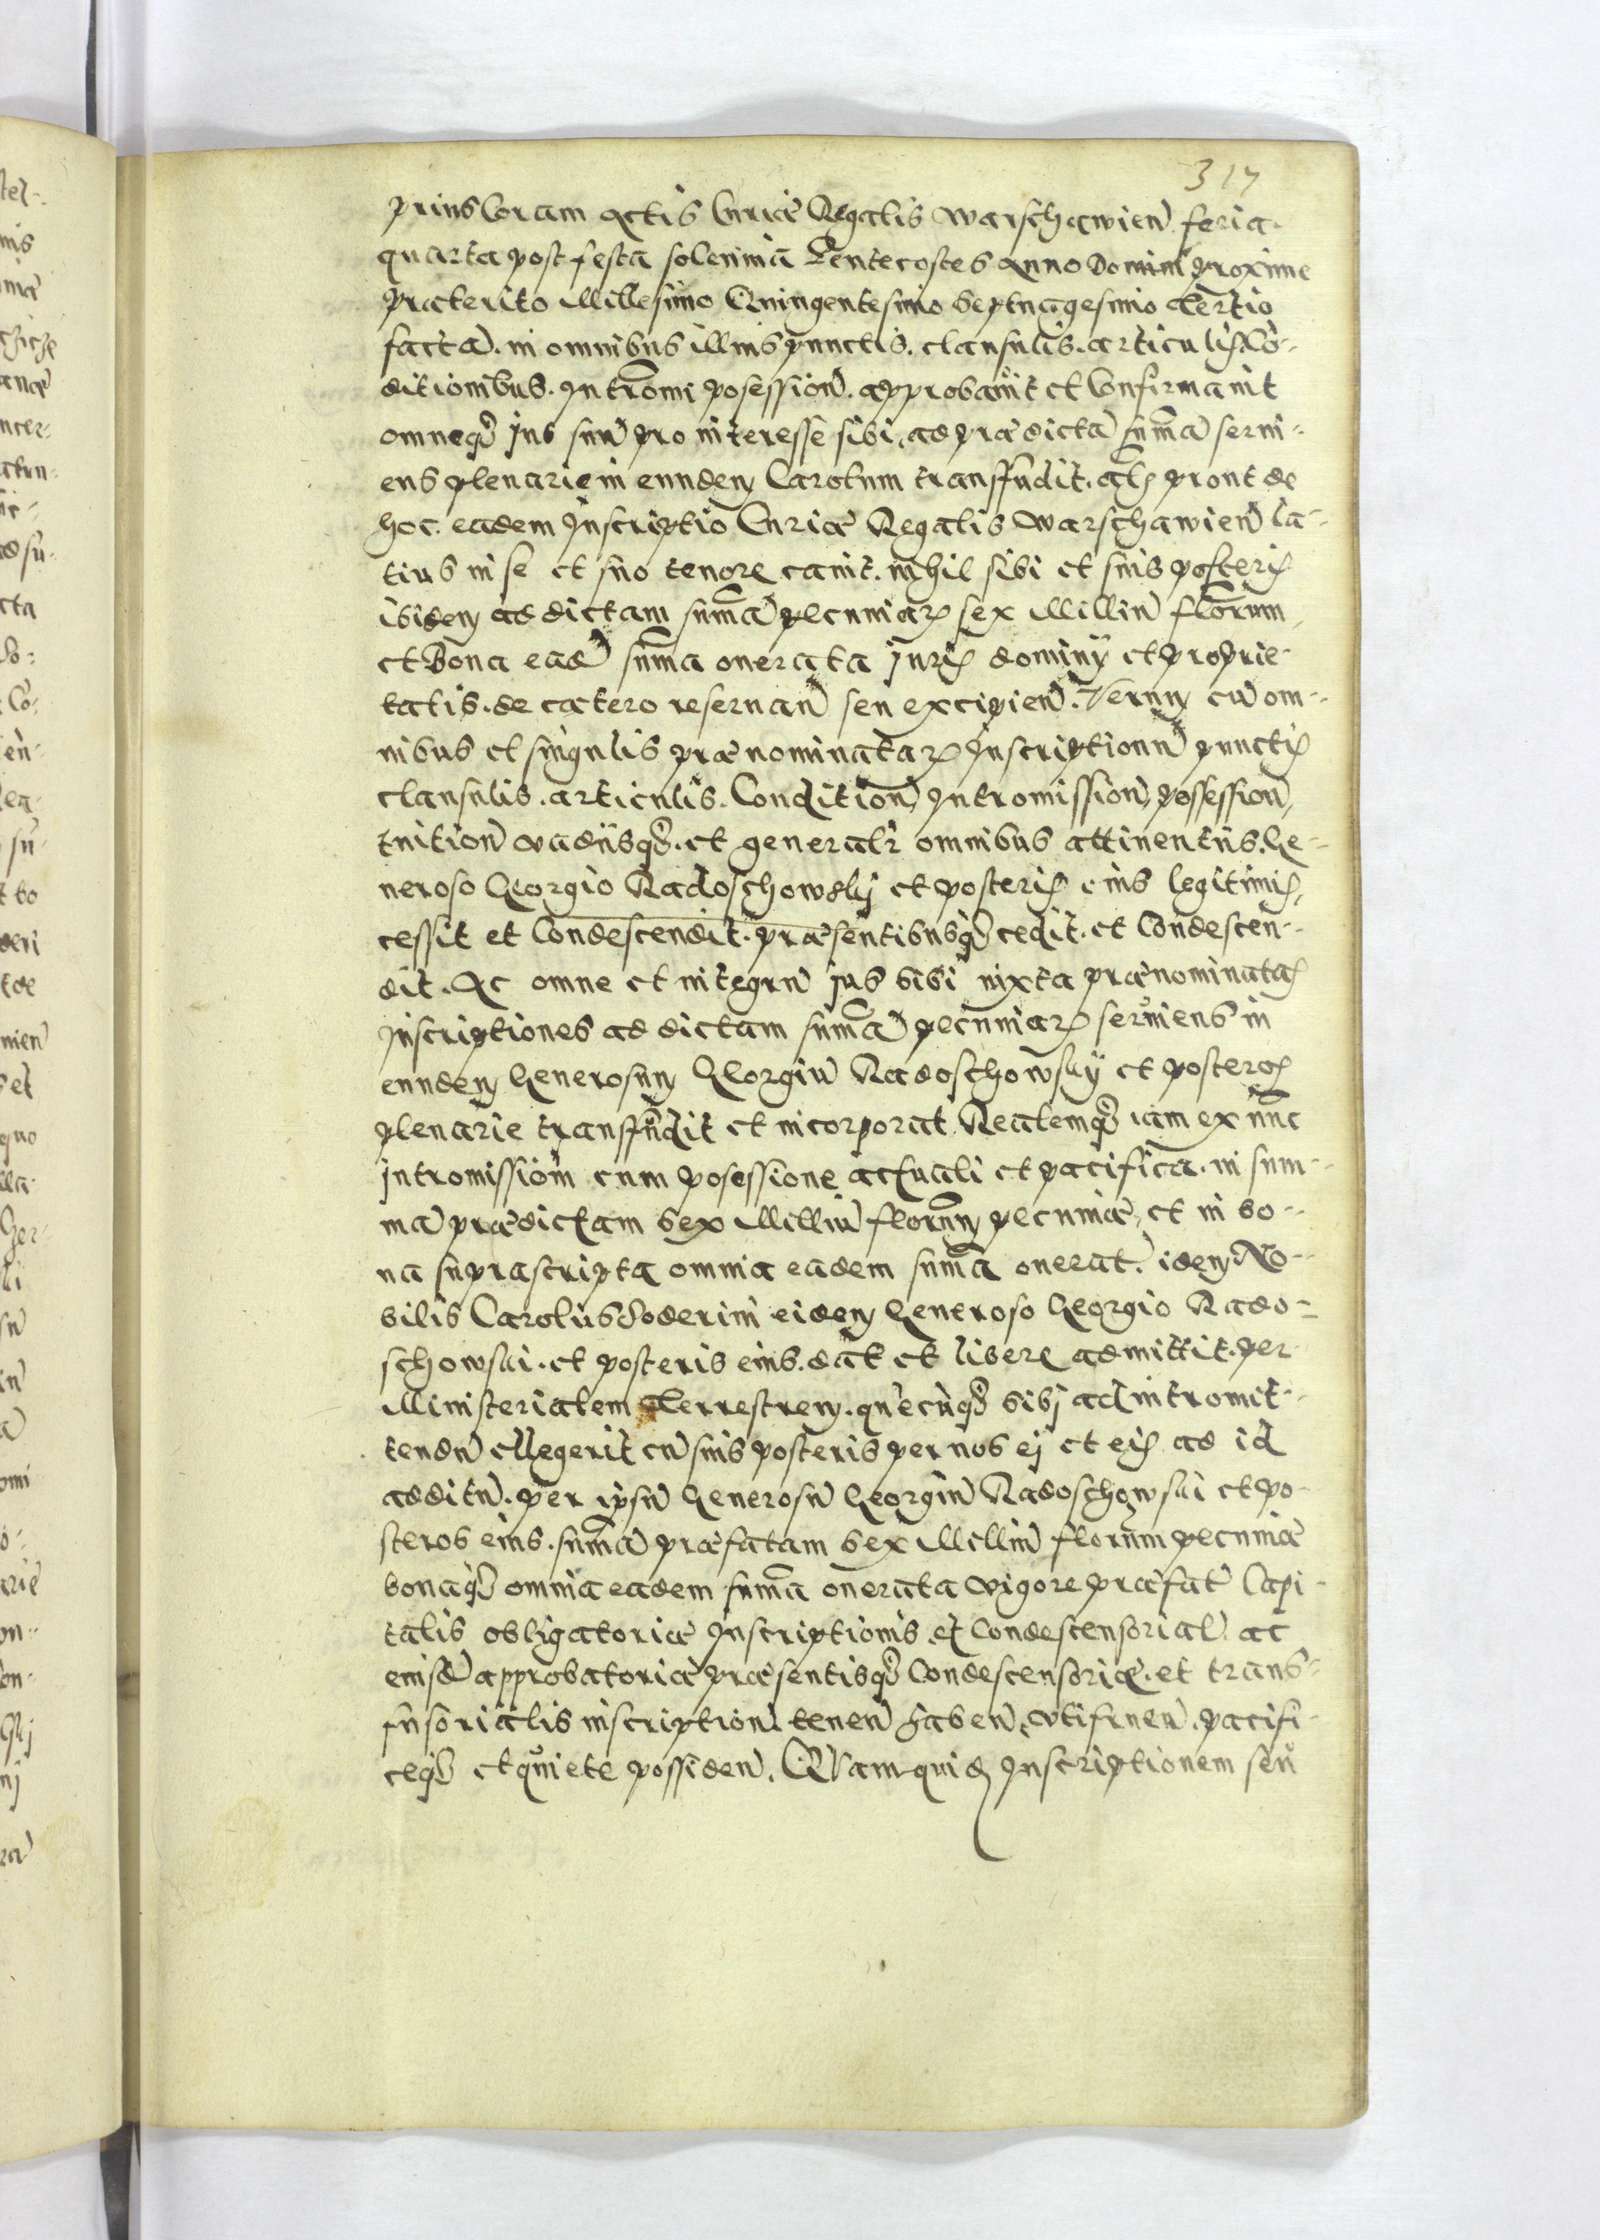 317
prius Coram Actis Curiæ Regalis Warschawien feria
quarta post festa solennia Pentecostes Anno Domini proxime
præterito Millesimo Quingentesimo Septuagesimo Tertio
facta. in omnibus illius punctis. clausulis. articulis. Cō-
ditionibus. Intromi posession. approbavit et Confirmavit
omneq; jus suū pro interesse sibi, ad prædictā sum̄ā servi-
ens plenarie in eundem Carolum transffudit. al's prout de
hoc. eadem Inscriptio Curiæ Regalis Warschawien la-
tius in se et suo tenore canit. nihil sibi et suis posteris
ibidem ad dictam sum̄ā pecuniaR sex Milliū florenorum
et Bona eadē sum̄a onerata juris dominij et proprie-
tatis. de cætero reservan seu excipien. Verum cū om-
nibus et singulis prænominataR Inscriptionū punctis
clausulis. articulis. Condition, Intromission, possession,
tuition vadijsq;. et generalr omnibus attinentijs. Ge-
neroso Georgio Radoschowskij et posteris eius legitimis,
cessit et Condescendit. præsentibusq; cedit. et Condescen-
dit. Ac omne et integrū jus sibi iuxta prænominatas
Inscriptiones ad dictam sum̄ā pecuniaR serviens in
eundem Generosum Georgiū Radoschowskij et posteros
plenarie transffudit et incorporat Realemq; iam ex nūc
intromissiom cum posessione actuali et pacifica. in sum-
mā prædictam sex Milliū florenum pecuniæ, et in bo-
na suprascripta omnia eadem sum̄a onerat. idem No-
bilis Carolus Soderini eidem Generoso Georgio Rado-
schowski. et posteris eius. dat et libere admittit. per
Ministerialem Terrestrem. quēcūq; sibj ad intromit-
tendū ellegerit cū suis posteris per nos ej et eis ad id
additū. per ipsū Generosū Georgiū Radoschowski et po-
steros eius. sum̄ā præfatam sex Milliū florenum pecuniæ
bonaq; omnia eadem sum̄a onerata vigore præfat Capi-
talis obligatoriæ Inscriptionis et Condescensorial. ac
eiusdē approbatoriæ præsentisq; Condescensoriæ. et trans-
fusorialis inscription. tenen haben, utifruen. pacifi-
ceq; et quiete possiden. Quam quid Inscriptionem seu